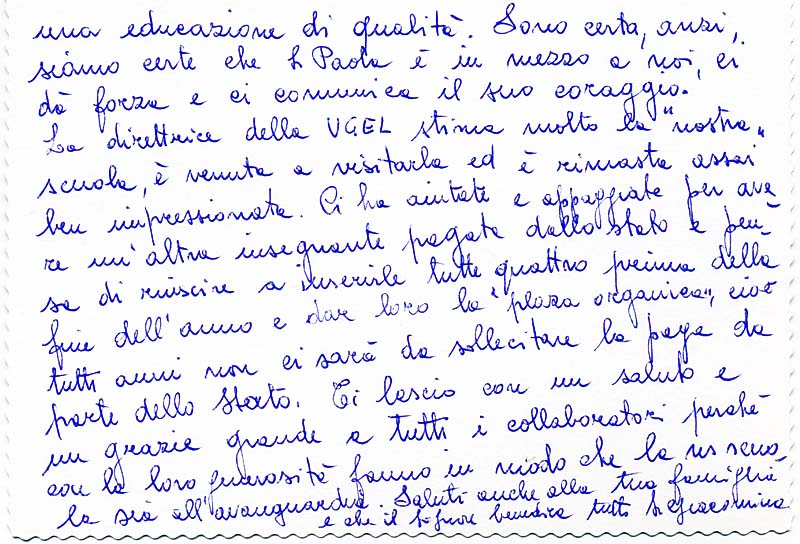 una educazione di qualità. Sono certa, anzi,
siamo certe che Sr Paola è in mezzo a noi, ci
dà forza e ci comunica il suo coraggio.
La direttrice della UGEL stima molto la "nostra"
scuola, è venuta a visitarla ed è rimasta assai
ben impressionata. Ci ha aiutate e appoggiate per ave-
re un'altra insegnante pagata dallo stato e pen-
sa di riuscire a inserirle tutte quattro prima della
fine dell'anno e dar loro la "plaza organica", cioè
tutti anni non ci sarà da sollecitare la paga da
parte dello Stato. Ti lascio con un saluto e
un grazie grande a tutti i collaboratori perchè
con la loro generosità fanno in modo che la ns scuo-
la sia all'avanguardia. Saluti anche alla tua famiglia
e che il Signore benedica tutti Sr Giacomina